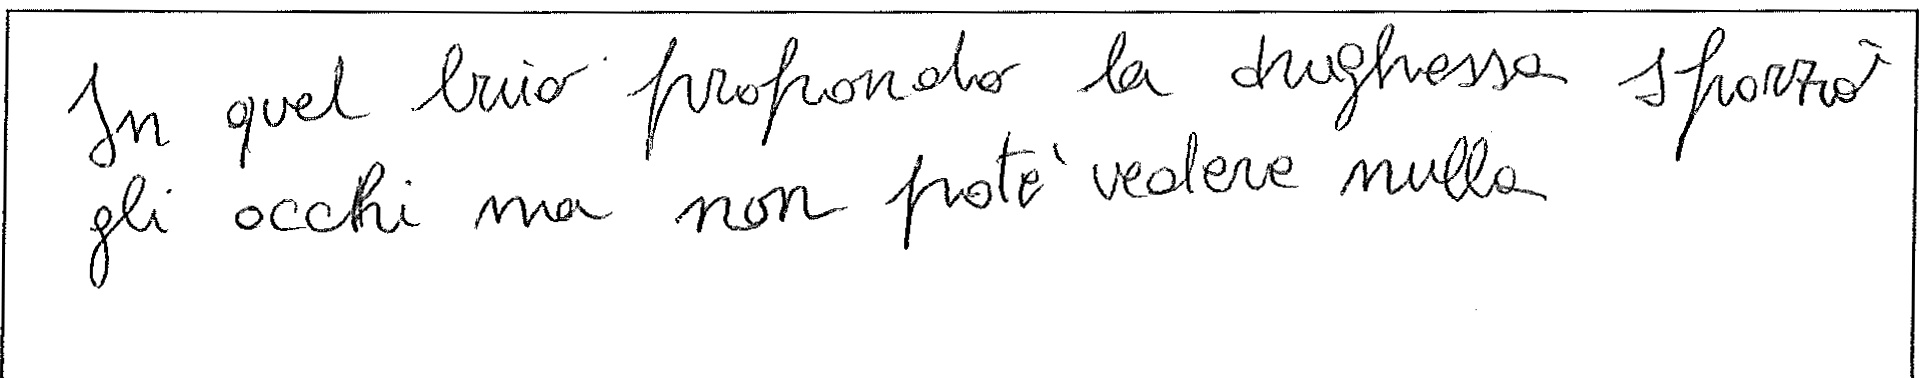 In quel bruio propondo la drughessa sporzò
gli occhi ma non potè vedere nulla